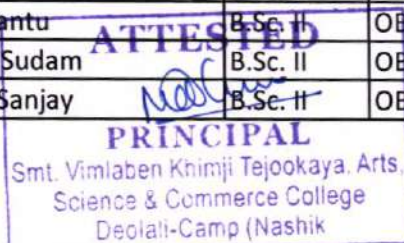 antu B.Sc. II OB
ATTESTED
Sudam B.Sc. II OB
Sanjay B.Sc. II OB
PRINCIPAL
Smt. Vimlaben Khimji Tejookaya, Arts,
Science & Commerce College
Deolali-Camp (Nashik